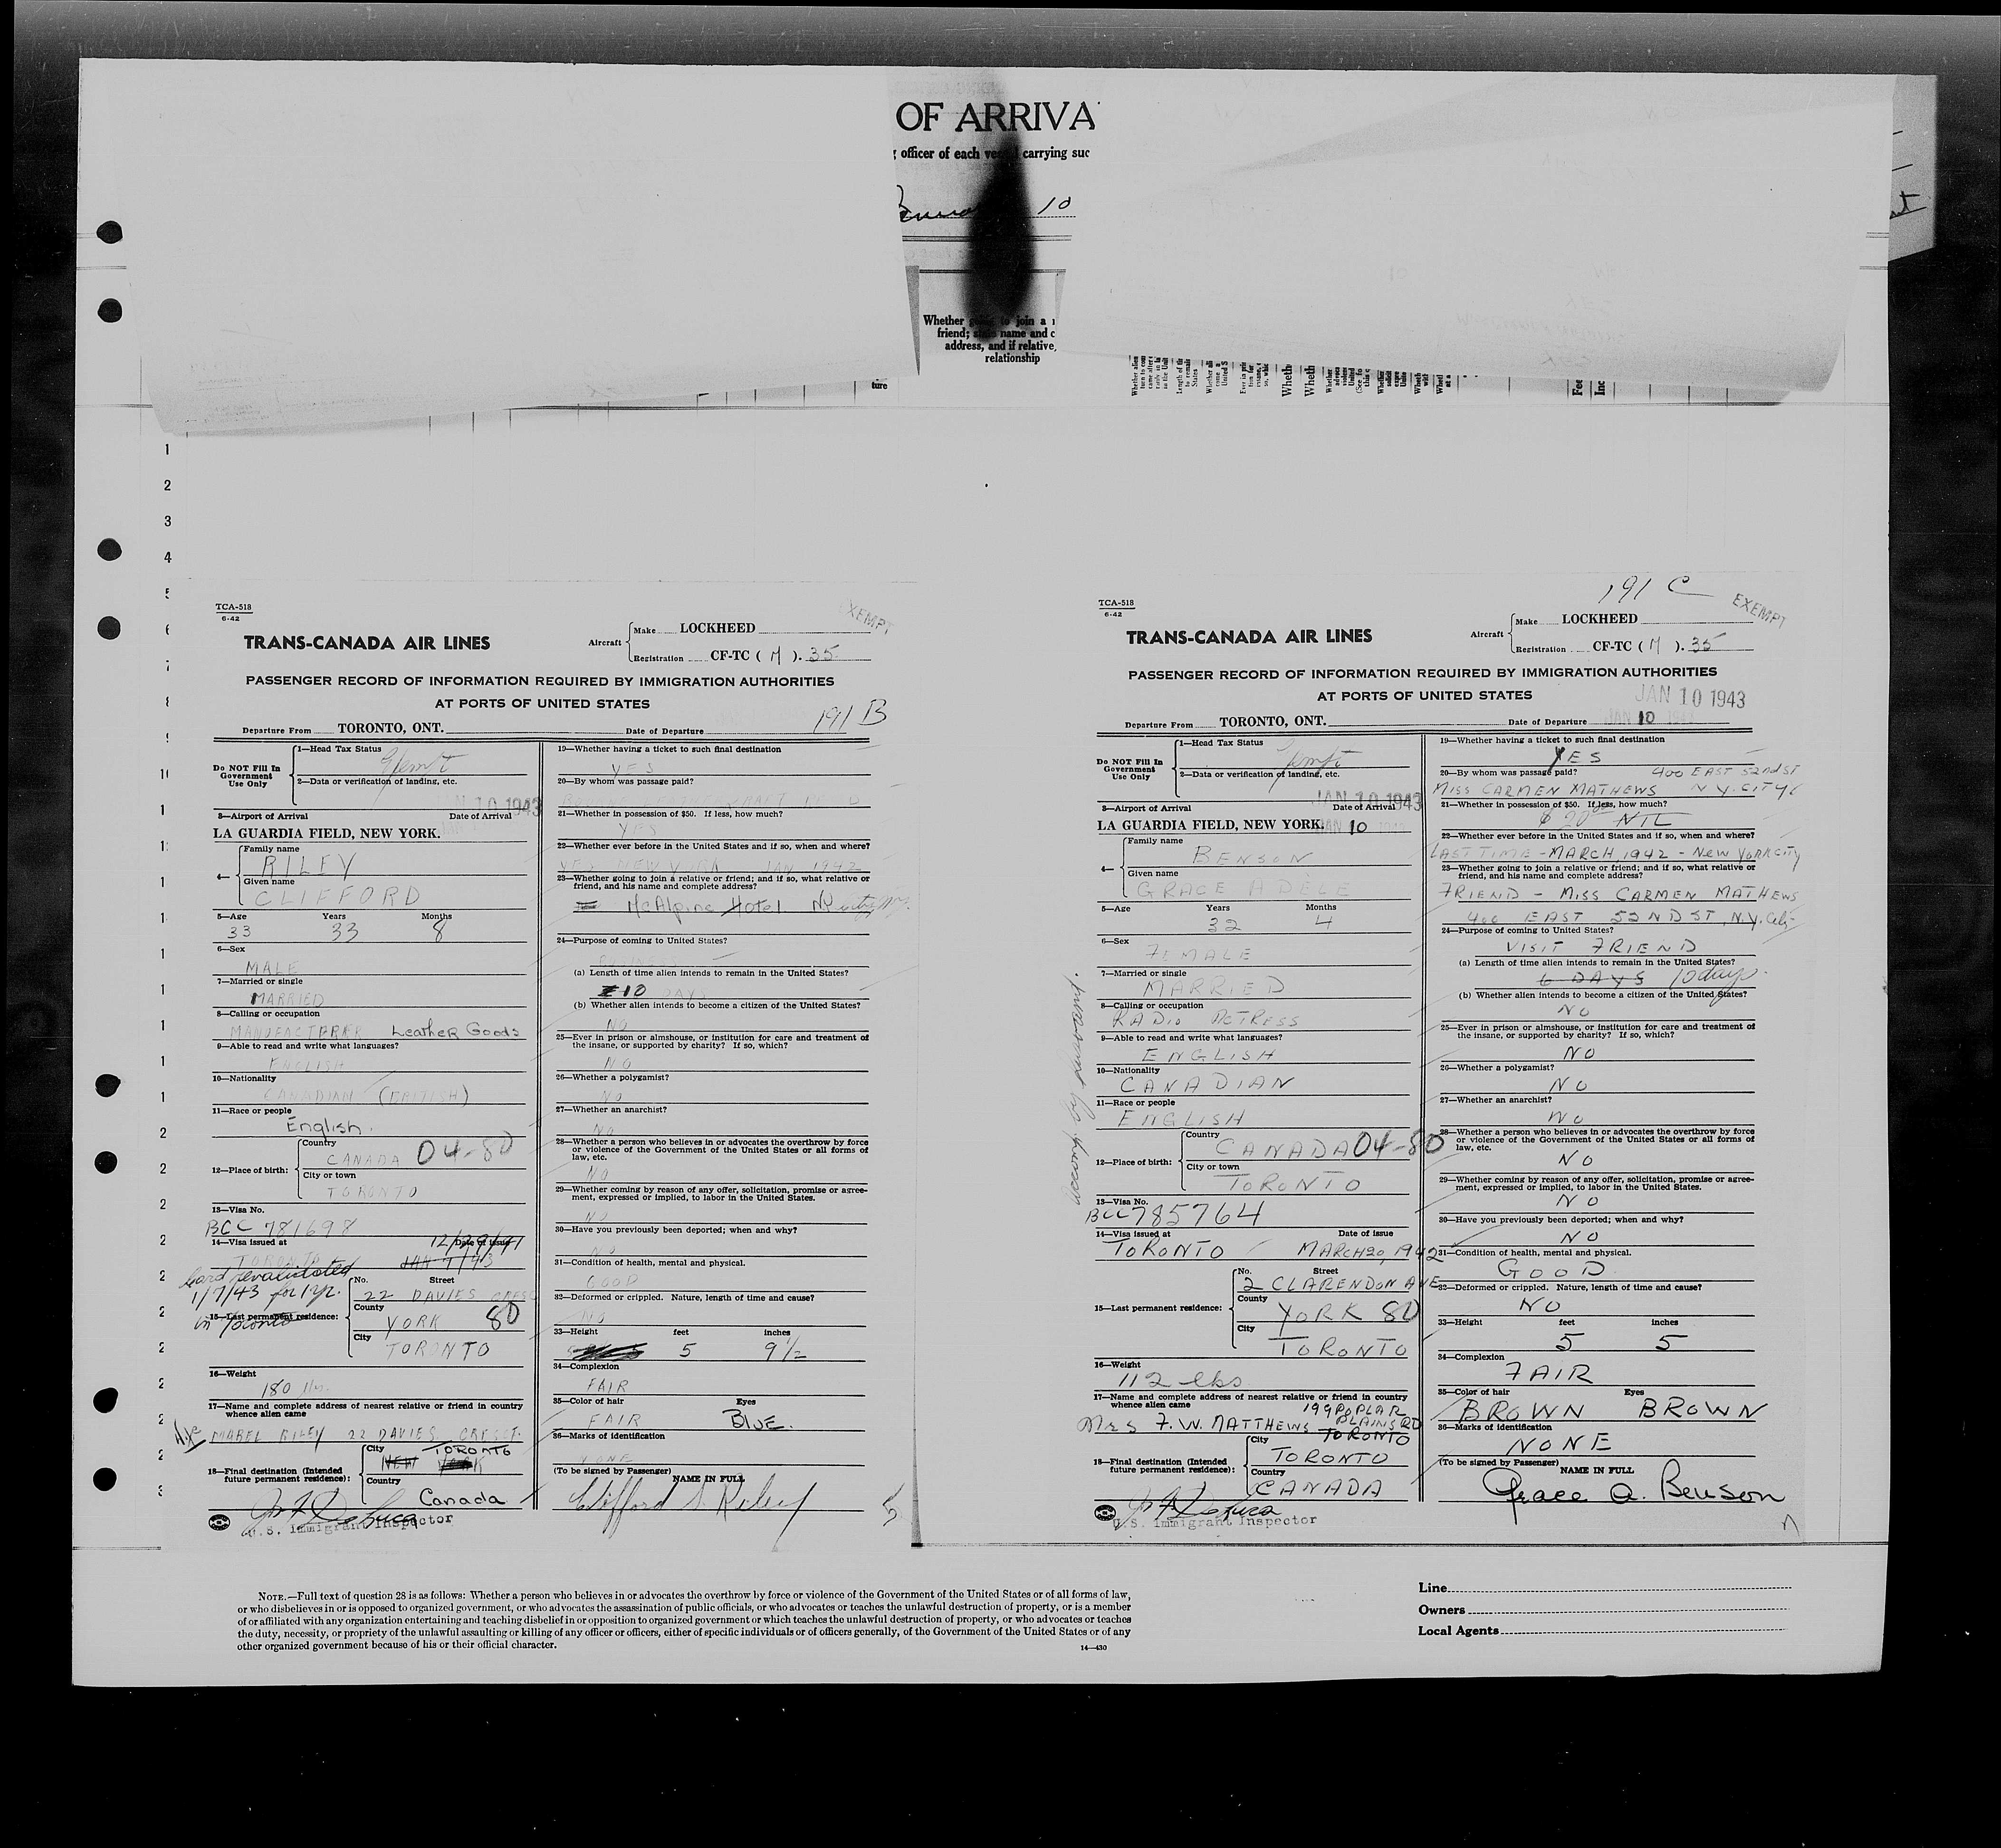 OF ARRIVA
officer of each ve carrying suc
10
Whether going to join a
friend; state name and c
address, and if relative,
relationship
ture
1
2
3
4
TCA-518
6-42
TRANS-CANADA AIR LINES
Aircraft
Make LOCKHEED
Registration CF-TC ( M ). 35
EXEMPT
PASSENGER RECORD OF INFORMATION REQUIRED BY IMMIGRATION AUTHORITIES
AT PORTS OF UNITED STATES
191 B
Departure From TORONTO, ONT. Date of Departure
Do NOT Fill In
Government
Use Only
1—Head Tax Status
2—Data or verification of landing, etc.
JAN 10 1943
3—Airport of Arrival Date of Arrival
LA GUARDIA FIELD, NEW YORK.
4—
Family name
RILEY
Given name
CLIFFORD
5—Age Years Months
33 33 8
6—Sex
MALE
7—Married or single
MARRIED
8—Calling or occupation
MANUFACTURER Leather Goods
9—Able to read and write what languages?
ENGLISH
10—Nationality
CANADIAN (BRITISH)
11—Race or people
English.
12—Place of birth:
Country
CANADA 04-80
City or town
TORONTO
13—Visa No.
BCC 781698
14—Visa issued at Date of issue
12/29/41
TORONTO JAN 7/43
Card revalidated
1/7/43 for 1 yr.
in Toronto
15—Last permanent residence:
No. Street
22 DAVIES CRES
County
YORK 80
City
TORONTO
16—Weight
180 lbs.
17—Name and complete address of nearest relative or friend in country
whence alien came
MABEL RILEY 22 DAVIES CRESCT.
18—Final destination (Intended
future permanent residence):
City TORONTO
NEW YORK
Country
Canada
U.S. Immigrant Inspector
19—Whether having a ticket to such final destination
YES
20—By whom was passage paid?
21—Whether in possession of $50. If less, how much?
YES
22—Whether ever before in the United States and if so, when and where?
YES NEW YORK JAN 1942
23—Whether going to join a relative or friend; and if so, what relative or
friend, and his name and complete address?
McAlpine Hotel
24—Purpose of coming to United States?
BUSINESS
(a) Length of time alien intends to remain in the United States?
10 DAYS
(b) Whether alien intends to become a citizen of the United States?
NO
25—Ever in prison or almshouse, or institution for care and treatment of
the insane, or supported by charity? If so, which?
NO
26—Whether a polygamist?
NO
27—Whether an anarchist?
NO
28—Whether a person who believes in or advocates the overthrow by force
or violence of the Government of the United States or all forms of
law, etc.
NO
29—Whether coming by reason of any offer, solicitation, promise or agree-
ment, expressed or implied, to labor in the United States.
NO
30—Have you previously been deported; when and why?
NO
31—Condition of health, mental and physical.
GOOD
32—Deformed or crippled. Nature, length of time and cause?
NO
33—Height feet inches
5 9 1/2
34—Complexion
FAIR
35—Color of hair Eyes
FAIR BLUE.
36—Marks of identification
NONE
(To be signed by Passenger)
NAME IN FULL
Clifford S. Riley
5
191 C
TCA-518
6-42
TRANS-CANADA AIR LINES
Aircraft
Make LOCKHEED
Registration CF-TC ( M ). 35
EXEMPT
PASSENGER RECORD OF INFORMATION REQUIRED BY IMMIGRATION AUTHORITIES
AT PORTS OF UNITED STATES
JAN 10 1943
Departure From TORONTO, ONT. Date of Departure JAN 10
Do NOT Fill In
Government
Use Only
1—Head Tax Status
2—Data or verification of landing, etc.
JAN 10 1943
3—Airport of Arrival Date of Arrival
LA GUARDIA FIELD, NEW YORK. JAN 10
4—
Family name
BENSON
Given name
GRACE ADELE
5—Age Years Months
32 4
6—Sex
FEMALE
7—Married or single
MARRIED
8—Calling or occupation
RADIO ACTRESS
9—Able to read and write what languages?
ENGLISH
10—Nationality
CANADIAN
11—Race or people
ENGLISH
12—Place of birth:
Country
CANADA 04-80
City or town
TORONTO
13—Visa No.
BCC 785764
14—Visa issued at Date of issue
TORONTO MARCH 20, 1942
15—Last permanent residence:
No. Street
2 CLARENDON AVE
County
YORK 80
City
TORONTO
16—Weight
112 lbs
17—Name and complete address of nearest relative or friend in country
whence alien came
199 POPLAR
Mrs F. W. MATTHEWS PLAINS RD
TORONTO
18—Final destination (Intended
future permanent residence):
City
TORONTO
Country
CANADA
U.S. Immigrant Inspector
19—Whether having a ticket to such final destination
YES
20—By whom was passage paid? 400 EAST 52nd ST
MISS CARMEN MATHEWS N.Y. CITY
21—Whether in possession of $50. If less, how much?
$20 NIL
22—Whether ever before in the United States and if so, when and where?
LAST TIME - MARCH, 1942 - NEW YORK CITY
23—Whether going to join a relative or friend; and if so, what relative or
friend, and his name and complete address?
FRIEND - MISS CARMEN MATHEWS
400 EAST 52ND ST, N.Y. City
24—Purpose of coming to United States?
VISIT FRIEND
(a) Length of time alien intends to remain in the United States?
6 DAYS 10 days.
(b) Whether alien intends to become a citizen of the United States?
NO
25—Ever in prison or almshouse, or institution for care and treatment of
the insane, or supported by charity? If so, which?
NO
26—Whether a polygamist?
NO
27—Whether an anarchist?
NO
28—Whether a person who believes in or advocates the overthrow by force
or violence of the Government of the United States or all forms of
law, etc.
NO
29—Whether coming by reason of any offer, solicitation, promise or agree-
ment, expressed or implied, to labor in the United States.
NO
30—Have you previously been deported; when and why?
NO
31—Condition of health, mental and physical.
GOOD
32—Deformed or crippled. Nature, length of time and cause?
NO
33—Height feet inches
5 5
34—Complexion
FAIR
35—Color of hair Eyes
BROWN BROWN
36—Marks of identification
NONE
(To be signed by Passenger)
NAME IN FULL
Grace A. Benson
NOTE.—Full text of question 28 is as follows: Whether a person who believes in or advocates the overthrow by force or violence of the Government of the United States or of all forms of law,
or who disbelieves in or is opposed to organized government, or who advocates the assassination of public officials, or who advocates or teaches the unlawful destruction of property, or is a member
of or affiliated with any organization entertaining and teaching disbelief in or opposition to organized government or which teaches the unlawful destruction of property, or who advocates or teaches
the duty, necessity, or propriety of the unlawful assaulting or killing of any officer or officers, either of specific individuals or of officers generally, of the Government of the United States or of any
other organized government because of his or their official character.
14—430
Line
Owners
Local Agents